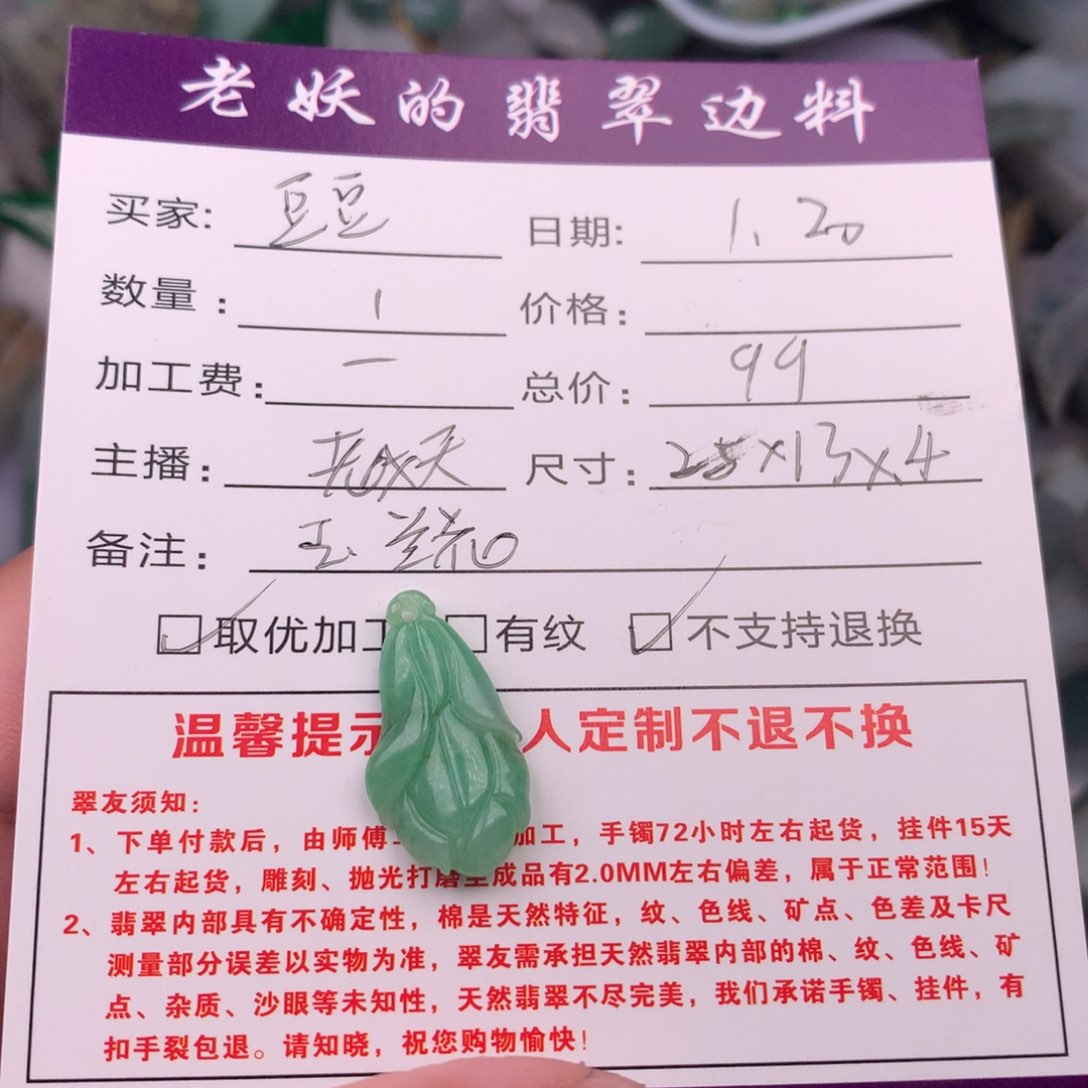 老妖的翡翠边料
买家: 豆豆 日期: 1.20
数量: 1 价格:
加工费: 一 总价: 99
主播: 老妖 尺寸: 28×13×4
备注: 玉兰花
取优加工 有纹 不支持退换
温馨提示 人定制不退不换
翠友须知:
1、下单付款后，由师傅 加工，手镯72小时左右起货，挂件15天
左右起货，雕刻、抛光打磨至成品有2.0MM左右偏差，属于正常范围!
2、翡翠内部具有不确定性，棉是天然特征，纹、色线、矿点、色差及卡尺
测量部分误差以实物为准，翠友需承担天然翡翠内部的棉、纹、色线、矿
点、杂质、沙眼等未知性，天然翡翠不尽完美，我们承诺手镯、挂件，有
扣手裂包退。请知晓，祝您购物愉快!